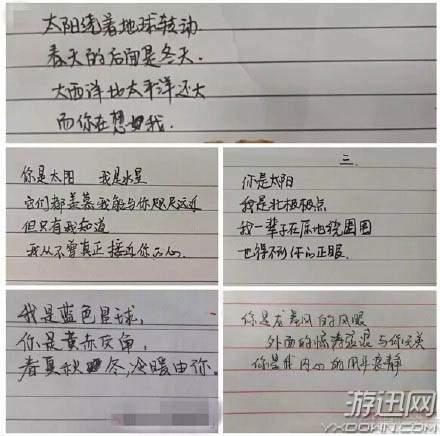 太阳绕着地球转动
春天的后面是冬天.
大西洋比太平洋还大
而你在想我.
你是太阳 我是水星
它们都羡慕我能与你咫尺远近
但只有我知道
我从不曾真正接近你的心
二.
你是太阳
我是北极极点
我一辈子在原地绕圈圈
也得不到你的正眼.
我是蓝色星球,
你是黄赤交角,
春夏秋冬,冷暖由你.
你是龙卷风的风眼
外面的惊涛骇浪与你无关
你是我内心的用年寂静
游迅网
YXDOWN.COM